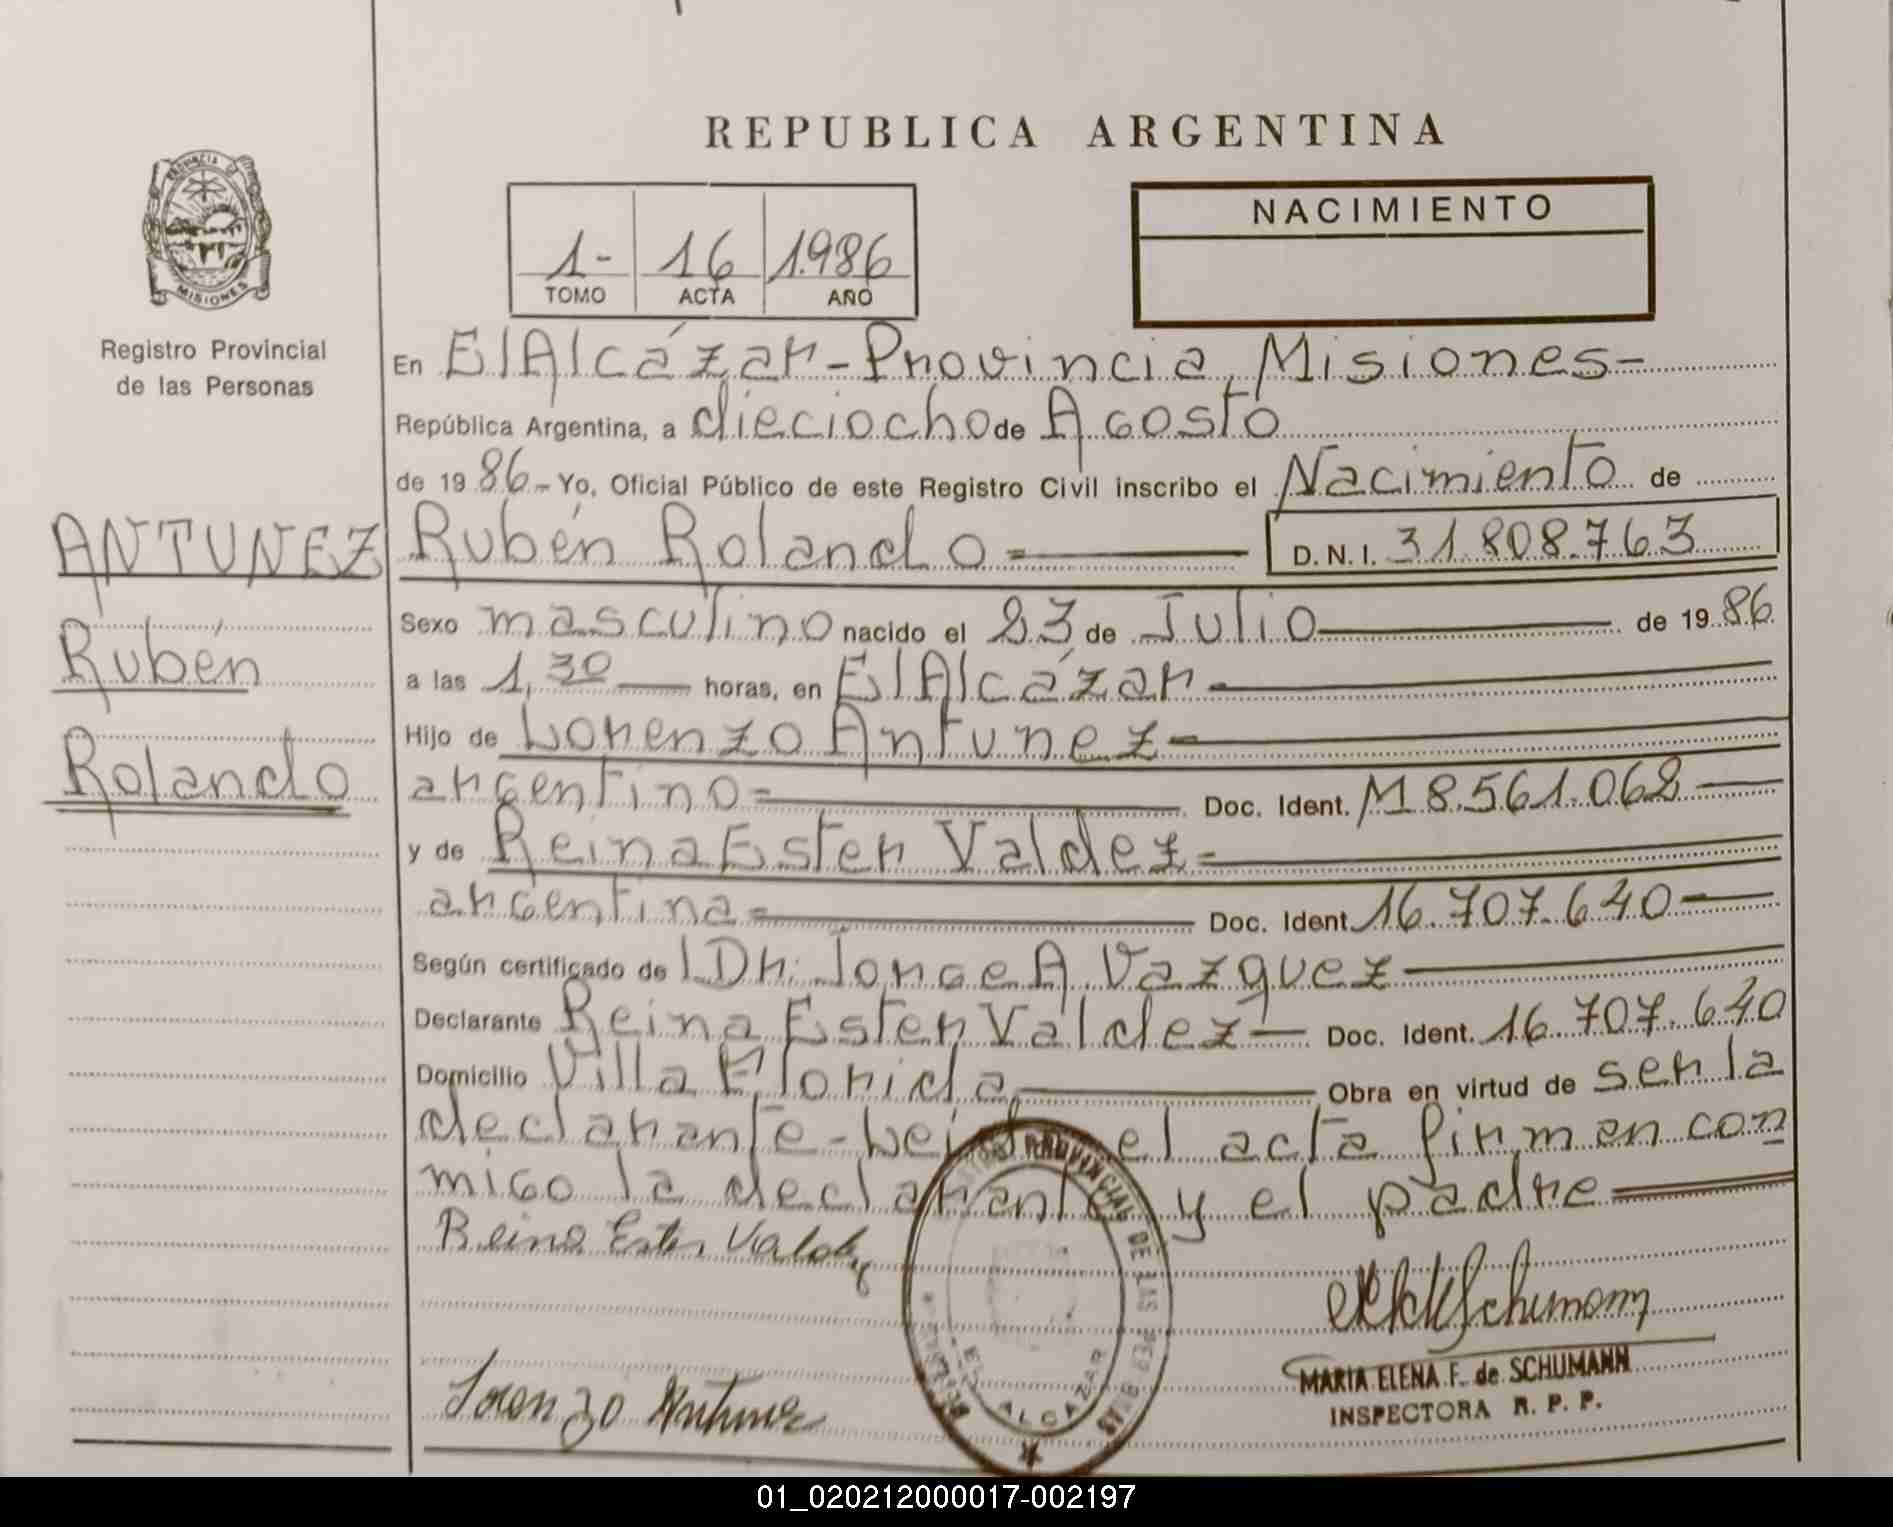 REPUBLICA ARGENTINA
PROVINCIA DE MISIONES
Registro Provincial
de las Personas
1- 16 1.986
TOMO ACTA AÑO
NACIMIENTO
En El Alcázar - Provincia Misiones-
República Argentina, a dieciocho de Agosto
de 19 86 - Yo, Oficial Público de este Registro Civil inscribo el Nacimiento de
ANTUNEZ
Rubén
Rolando
Rubén Rolando = D.N.I. 31.808.763
Sexo masculino nacido el 23 de Julio de 19 86
a las 1,30 horas, en El Alcázar
Hijo de Lorenzo Antunez
argentino= Doc. Ident. M 8.561.062
y de Reina Ester Valdez=
argentina= Doc. Ident. 16.707.640
Según certificado del Dr. Jorge A. Vazquez
Declarante Reina Ester Valdez Doc. Ident. 16.707.640
Domicilio Villa Florida Obra en virtud de ser la
declarante - Leída el acta firman con
migo la declarante y el padre
Reina Ester Valdez
Lorenzo Antunez
PROVINCIAL DE LAS PERSONAS
EL ALCAZAR
Schumann
MARIA ELENA F. de SCHUMANN
INSPECTORA R. P. P.
01_020212000017-002197